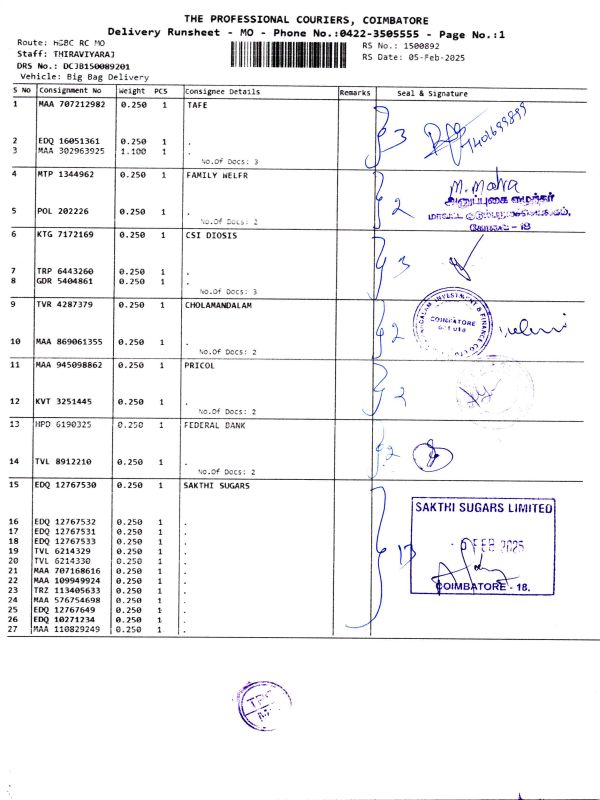 THE PROFESSIONAL COURIERS, COIMBATORE
Delivery Runsheet - MO - Phone No.:0422-3505555 - Page No.:1
Route: HSBC RC MO
RS No.: 1500892
Staff: THIRAVIYARAJ
RS Date: 05-Feb-2025
DRS No.: DCJB150089201
Vehicle: Big Bag Delivery
S No Consignment No Weight PCS Consignee Details Remarks Seal & Signature
1 MAA 707212982 0.250 1 TAFE
2 EDQ 16051361 0.250 1 .
3 MAA 302963925 1.100 1 .
No.Of Docs: 3
3
4 MTP 1344962 0.250 1 FAMILY WELFR
5 POL 202226 0.250 1 .
No.Of Docs: 2
2
கோவை - 18
6 KTG 7172169 0.250 1 CSI DIOSIS
7 TRP 6443260 0.250 1 .
8 GDR 5404861 0.250 1 .
No.Of Docs: 3
3
9 TVR 4287379 0.250 1 CHOLAMANDALAM
10 MAA 869061355 0.250 1 .
No.Of Docs: 2
2
COIMBATORE
11 MAA 945098862 0.250 1 PRICOL
12 KVT 3251445 0.250 1 .
No.Of Docs: 2
2
13 HPD 6190325 0.250 1 FEDERAL BANK
14 TVL 8912210 0.250 1 .
No.Of Docs: 2
2
15 EDQ 12767530 0.250 1 SAKTHI SUGARS
16 EDQ 12767532 0.250 1 .
17 EDQ 12767531 0.250 1 .
18 EDQ 12767533 0.250 1 .
19 TVL 6214329 0.250 1 .
20 TVL 6214330 0.250 1 .
21 MAA 707168616 0.250 1 .
22 MAA 109949924 0.250 1 .
23 TRZ 113405633 0.250 1 .
24 MAA 576754698 0.250 1 .
25 EDQ 12767649 0.250 1 .
26 EDQ 10271234 0.250 1 .
27 MAA 110829249 0.250 1 .
13
SAKTHI SUGARS LIMITED
FEB 2025
COIMBATORE - 18.